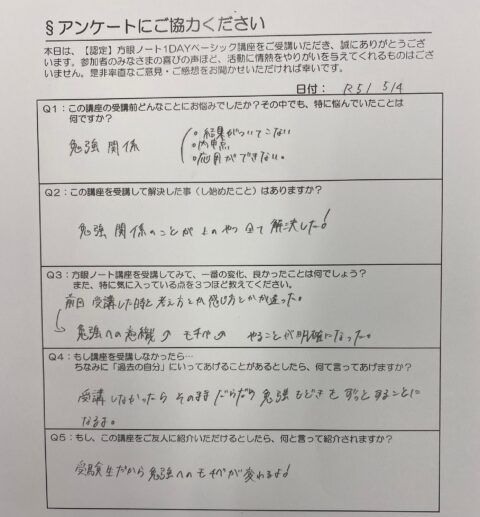 §アンケートにご協力ください
本日は、【認定】方眼ノート1DAYベーシック講座をご受講いただき、誠にありがとうござ
います。参加者のみなさまの喜びの声ほど、活動に情熱をやりがいを与えてくれるものはござ
いません。是非率直なご意見・ご感想をお聞かせいただければ幸いです。
日付: R5/ 5/4
Q1:この講座の受講前どんなことにお悩みでしたか?その中でも、特に悩んでいたことは
何ですか?
勉強関係
。結果がついてこない
。内申点
。応用ができない。
Q2:この講座を受講して解決した事(し始めたこと)はありますか?
勉強関係のことが上のやつ全て解決した!
Q3:方眼ノート講座を受講してみて、一番の変化、良かったことは何でしょう?
また、特に気に入っている点を3つほど教えてください。
前回受講した時と考え方とか感じ方とかが違った。
↳ 勉強への意識↗ モチベ↗ やることが明確になった。
Q4:もし講座を受講しなかったら…
ちなみに「過去の自分」にいってあげることがあるとしたら、何て言ってあげますか?
受講しなかったらそのままだらだら勉強もどきをずっとすることに
なるよ。
Q5:もし、この講座をご友人に紹介いただけるとしたら、何と言って紹介されますか?
受験生だから勉強へのモチベが変わるよ!